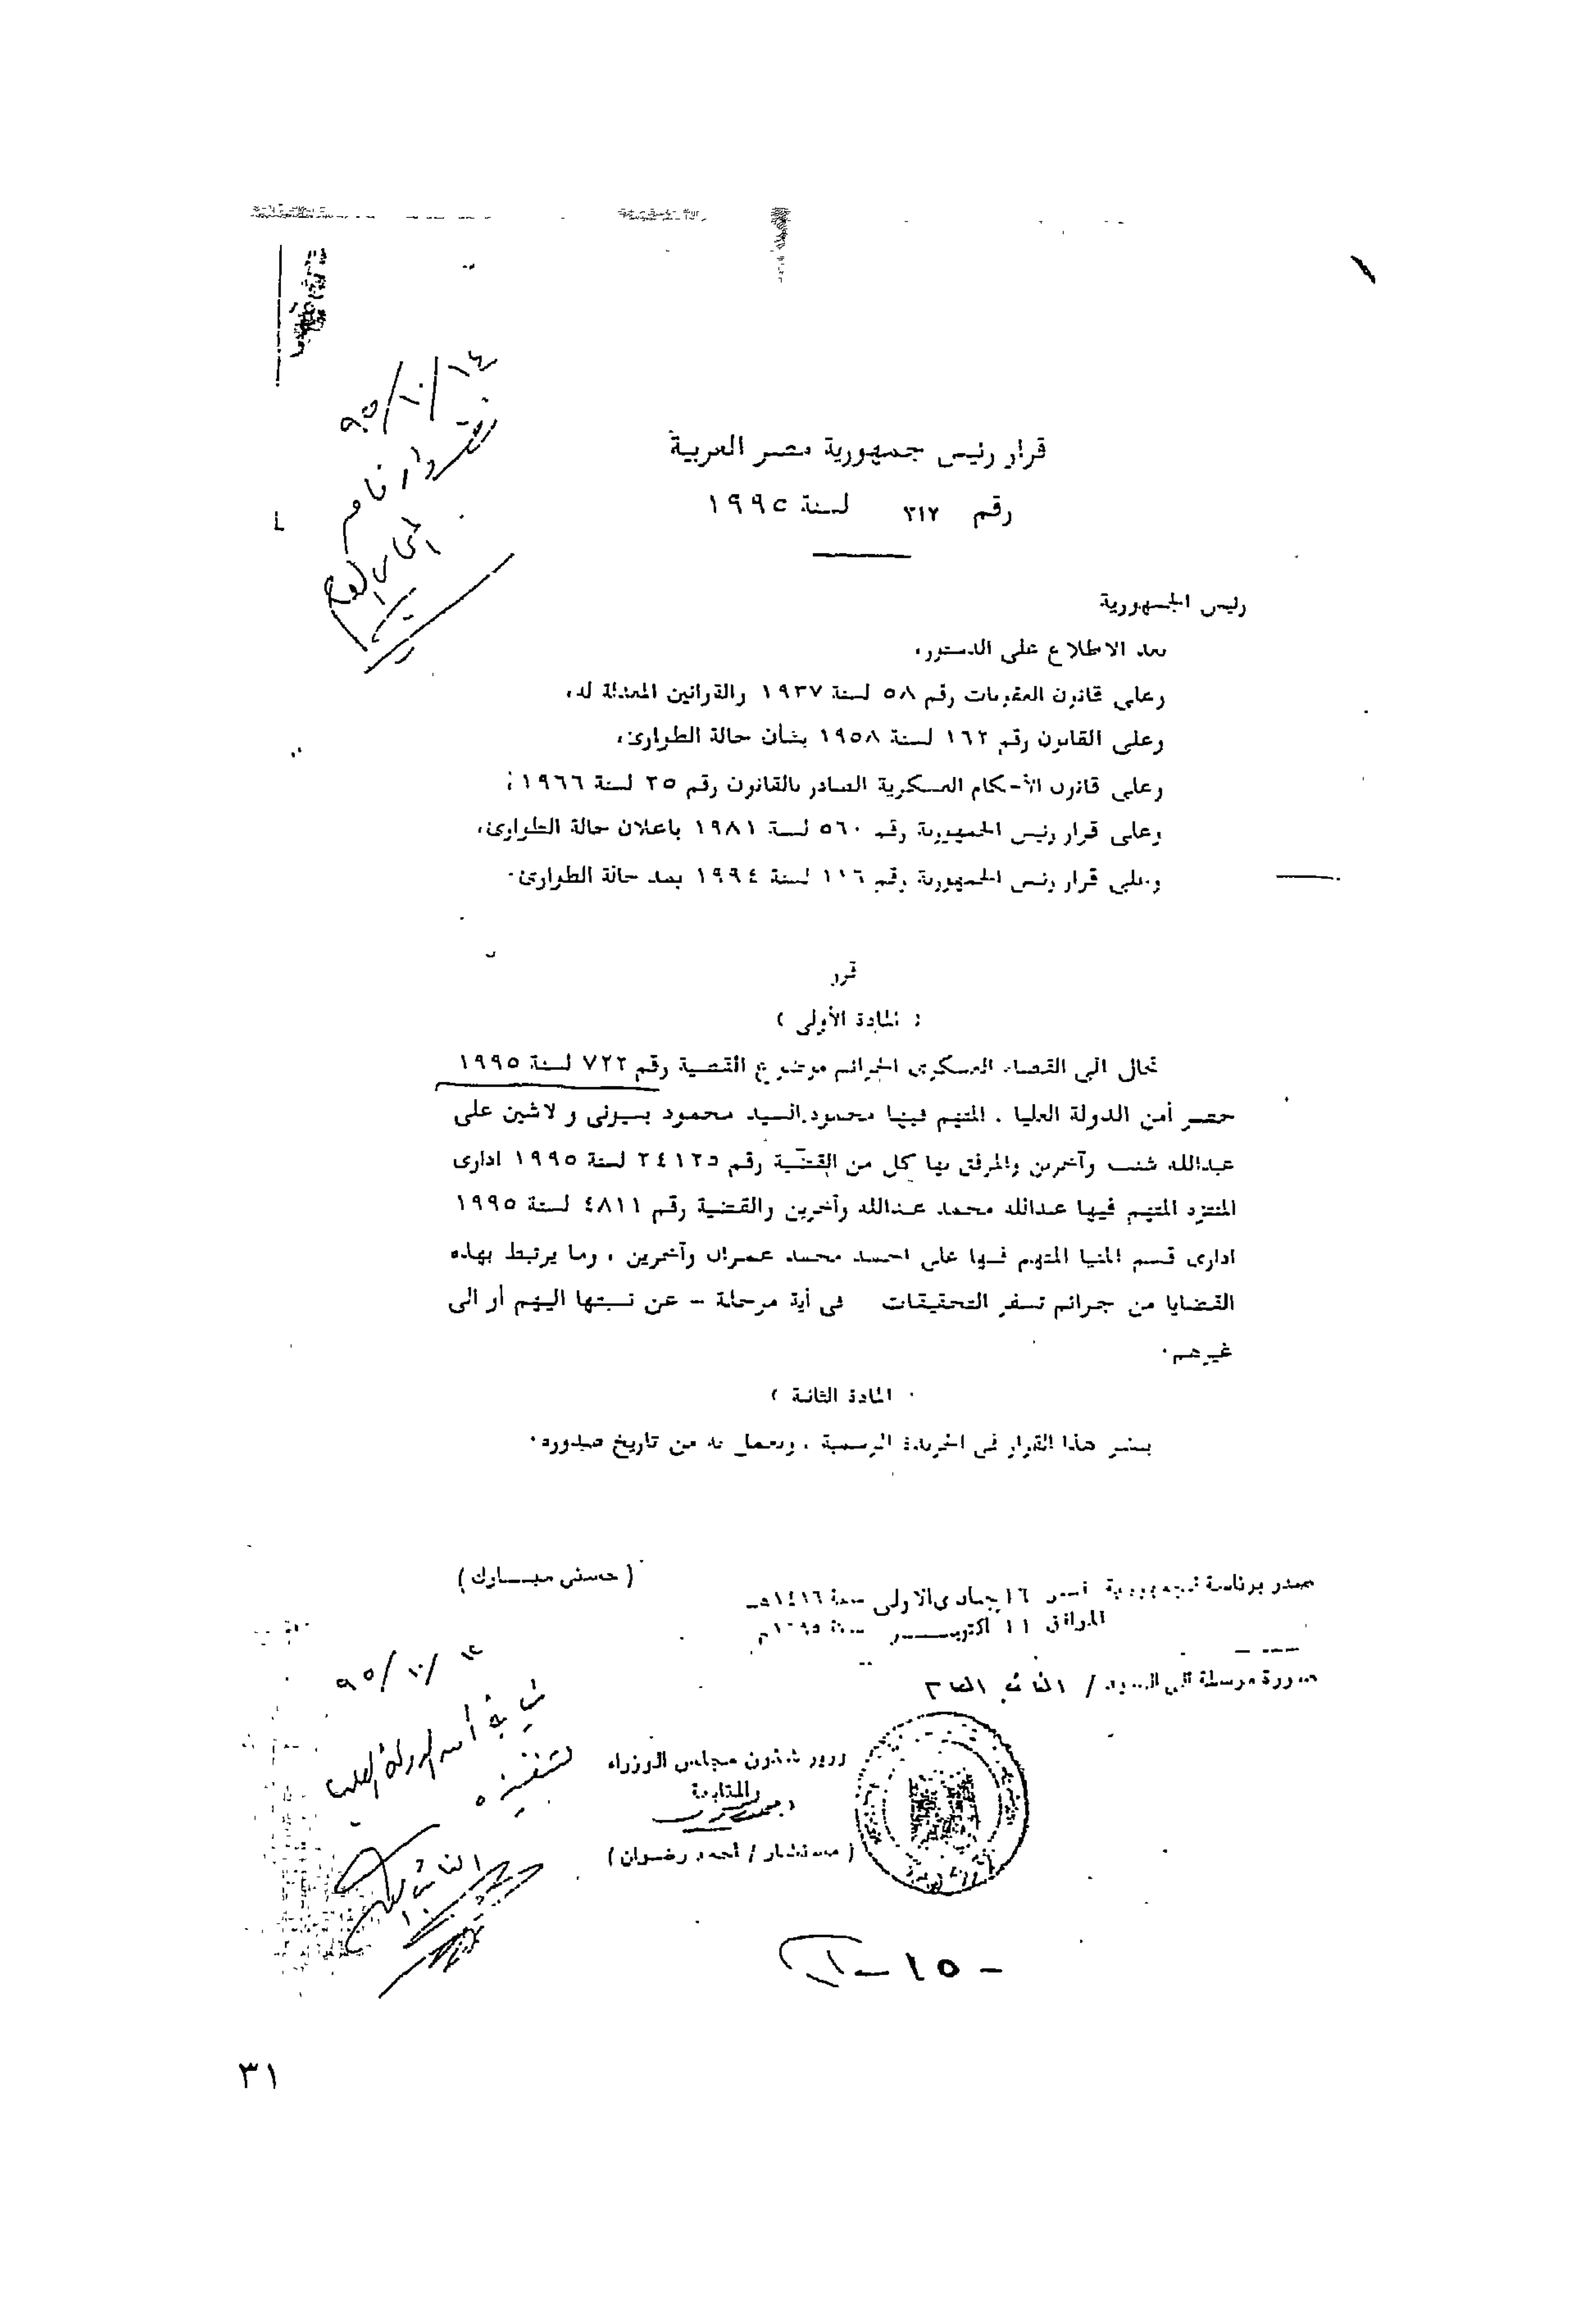 ٩٥/١٠/١٤
قرار رئيس جمهورية مصر العربية
رقم ٣١٢ لسنة ١٩٩٥
رئيس الجمهورية
بعد الاطلاع على الدستور،
وعلى قانون العقوبات رقم ٥٨ لسنة ١٩٣٧ والقوانين المعدلة له،
وعلى القانون رقم ١٦٢ لسنة ١٩٥٨ بشأن حالة الطوارئ،
وعلى قانون الأحكام العسكرية الصادر بالقانون رقم ٢٥ لسنة ١٩٦٦؛
وعلى قرار رئيس الجمهورية رقم ٥٦٠ لسنة ١٩٨١ باعلان حالة الطوارئ،
وعلى قرار رئيس الجمهورية رقم ١١٦ لسنة ١٩٩٤ بمد حالة الطوارئ٠
قرر
( المادة الأولى )
تحال الى القضاء العسكرى الجرائم موضوع القضية رقم ٧٢٢ لسنة ١٩٩٥
حصر أمن الدولة العليا ، المتهم فيها محمود السيد محمود بسيونى و لاشين على
عبدالله شنب وآخرين والمرفق بها كل من القضية رقم ٢٤١٢٥ لسنة ١٩٩٥ ادارى
المنتزه المتهم فيها عبدالله محمد عبدالله وآخرين والقضية رقم ٤٨١١ لسنة ١٩٩٥
ادارى قسم المنيا المتهم فيها على احمد محمد عمران وآخرين ، وما يرتبط بهذه
القضايا من جرائم تسفر التحقيقات فى أية مرحلة – عن نسبتها اليهم أو الى
غيرهم٠
( المادة الثانية )
ينشر هذا القرار فى الجريدة الرسمية ، ويعمل به من تاريخ صدوره٠
( حسنى مبـــارك )
صدر برئاسة الجمهورية فى ١٦ جمادى الاولى سنة ١٤١٦هـ
الموافق ١١ أكتوبـــر سنة ١٩٩٥م
صورة مرسلة الى السيد / النائب العام
وزير شئون مجلس الوزراء
والمتابعة
( مستشار / أحمد رضوان )
٩٥/١٠/١٢
نيابة أمن الدولة العليا
لتنفيذه
النائب العام
- ١٥ -
٣١